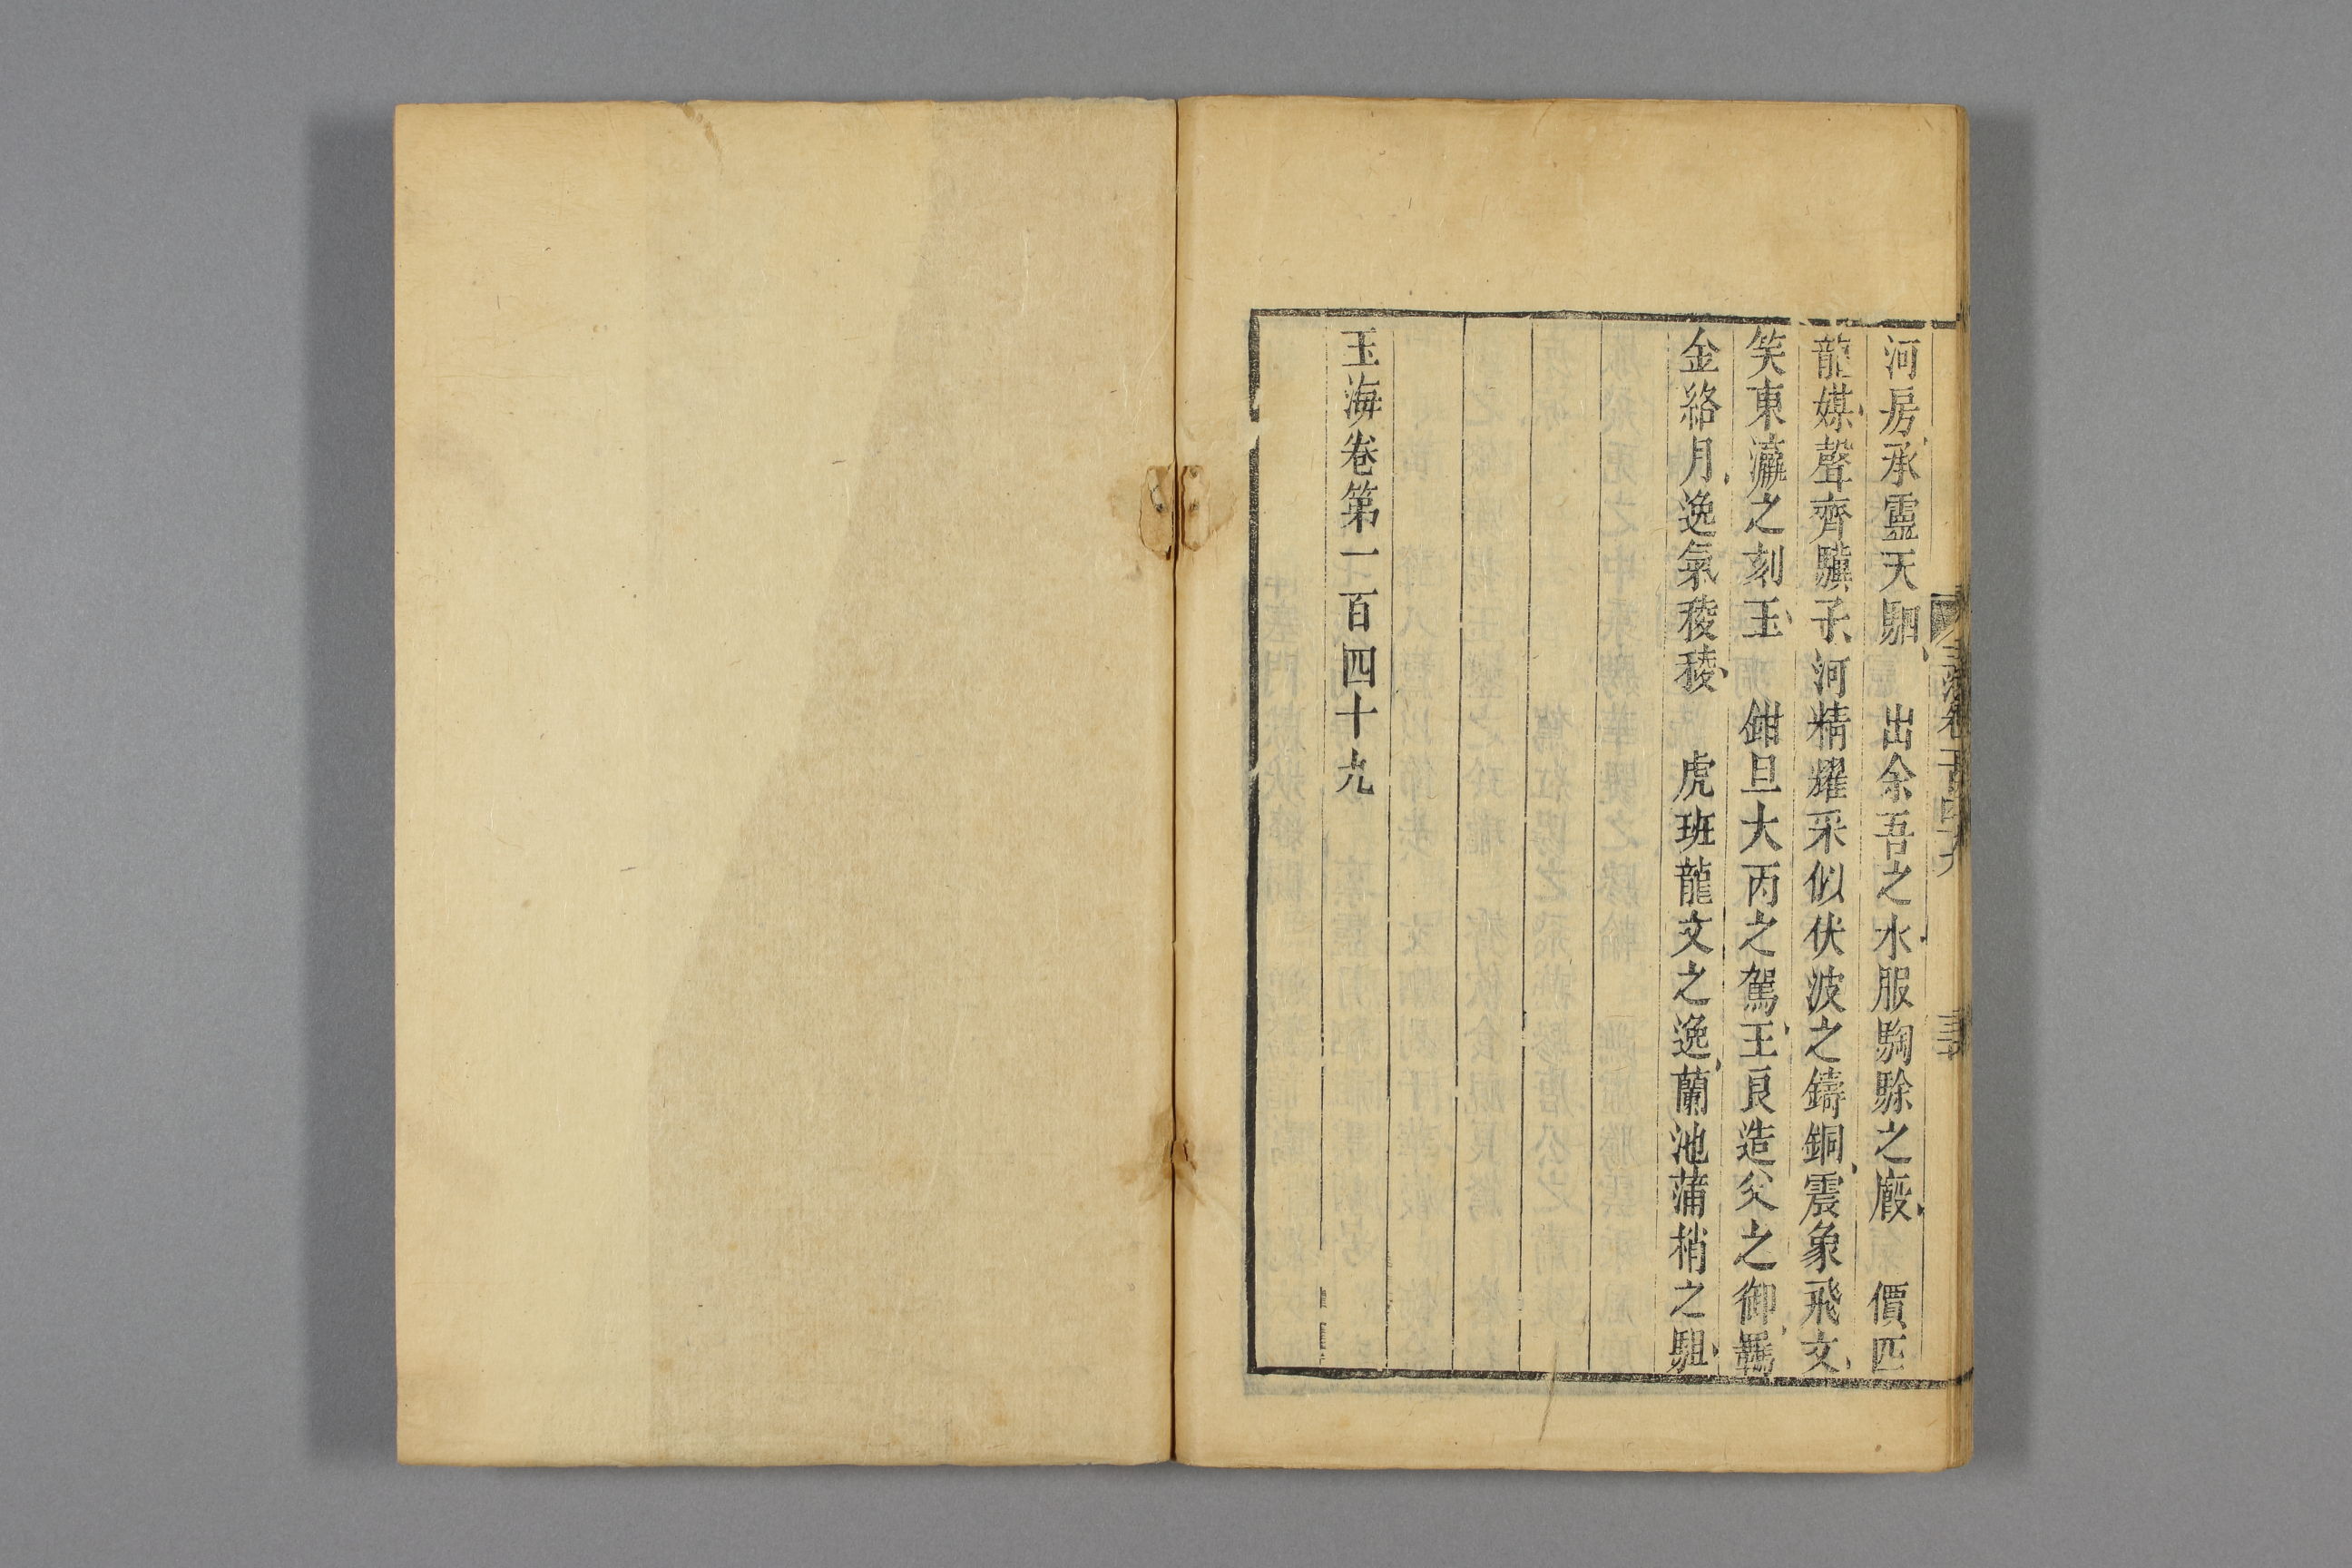 河房承靈天駟　出余吾之水服騊駼之廄　價匹
龍媒聲齊驥子河精耀采似伏波之鑄銅震象飛文
笑東瀛之刻玉　鉗且大丙之駕王良造父之御羈
金絡月逸氣稜稜　虎班龍文之逸蘭池蒲梢之駔
玉海卷第一百四十九
玉海卷百四九